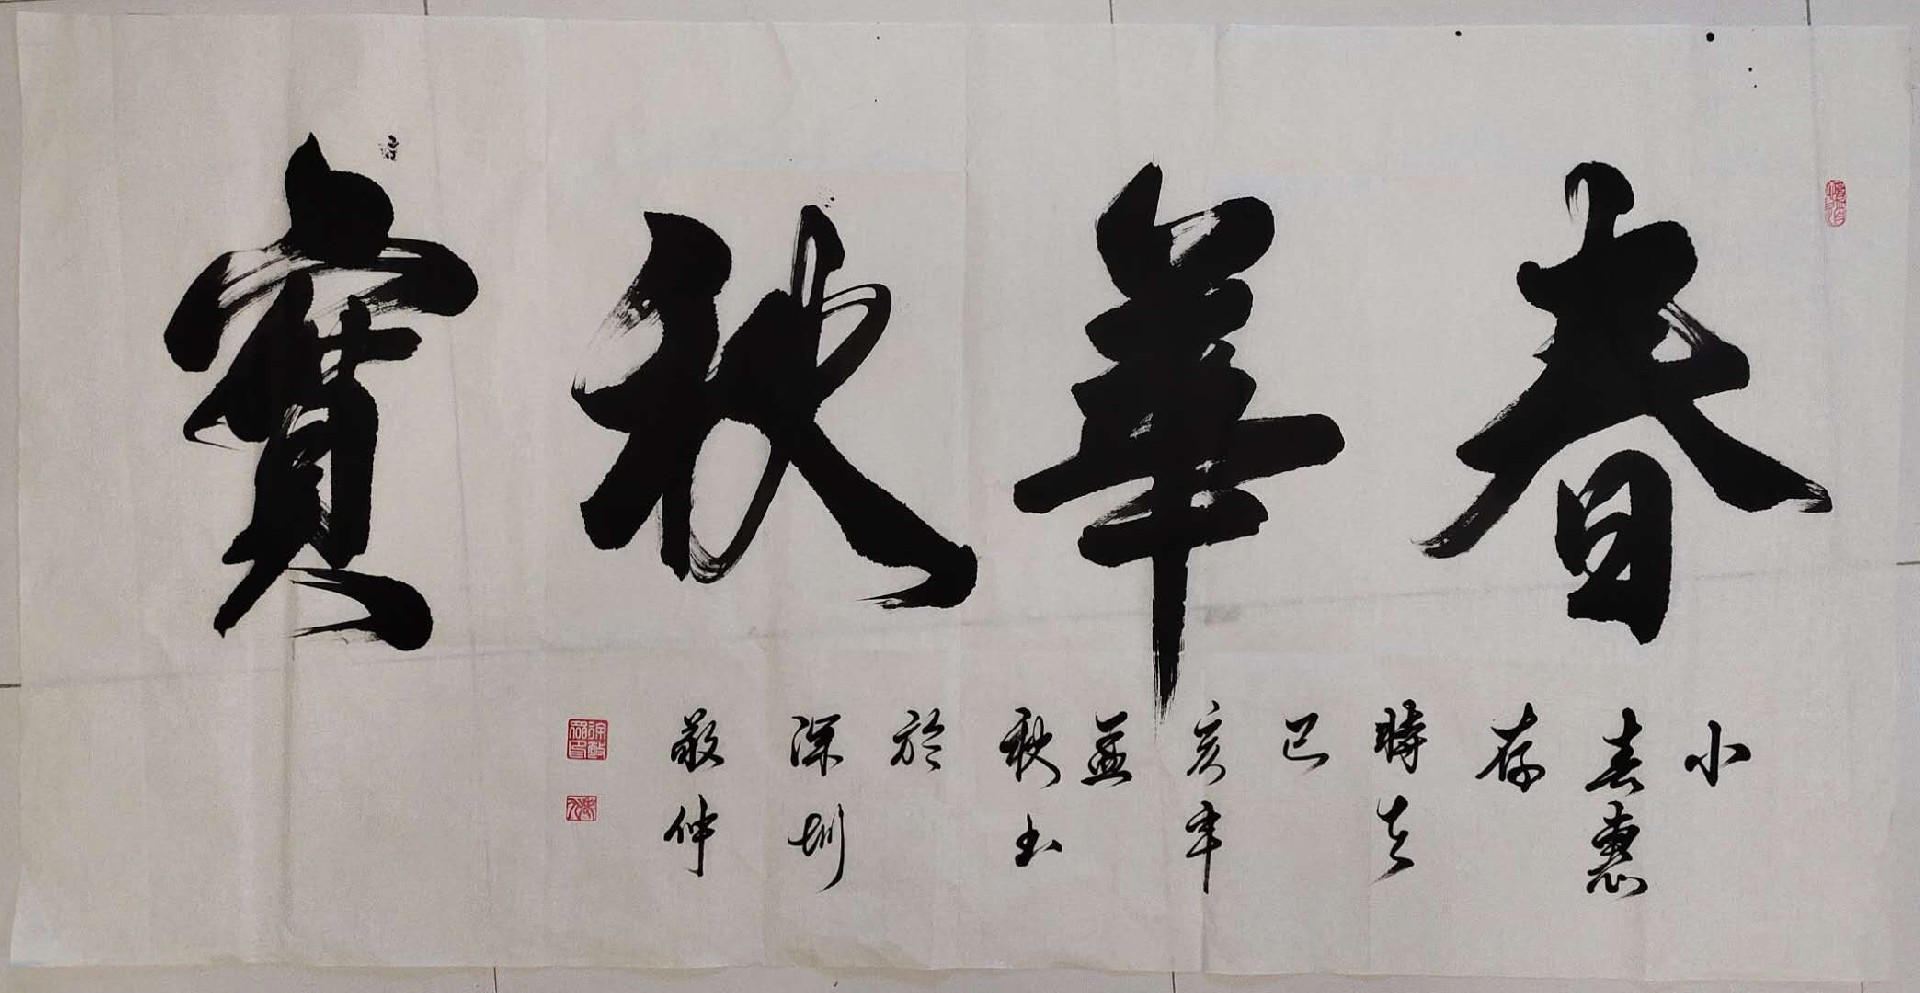 春華秋實
小
春惠
存
時在
己
亥年
孟
秋書
於
深圳
敬仲